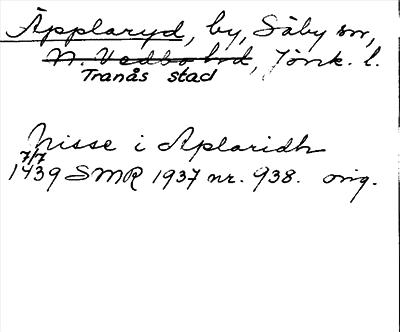 Äpplaryd, by, Säby sn,
N. Vedbo hd, Jönk. l.
Tranås stad
Nisse i Aplaridh
7/7
1439 SMR 1937 nr. 938. orig.